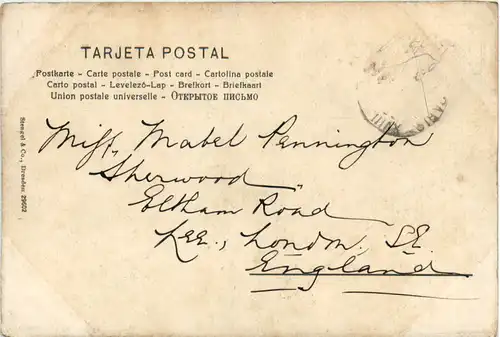 TARJETA POSTAL
Postkarte – Carte postale – Post card – Cartolina postale
Carto postal – Levelező-Lap – Brefkort – Briefkaart
Union postale universelle – ОТКРЫТОЕ ПИСЬМО
Stengel & Co., Dresden 29602
Miss Mabel Pennington
"Sherwood"
Eltham Road
Lee., London. S.E.
England